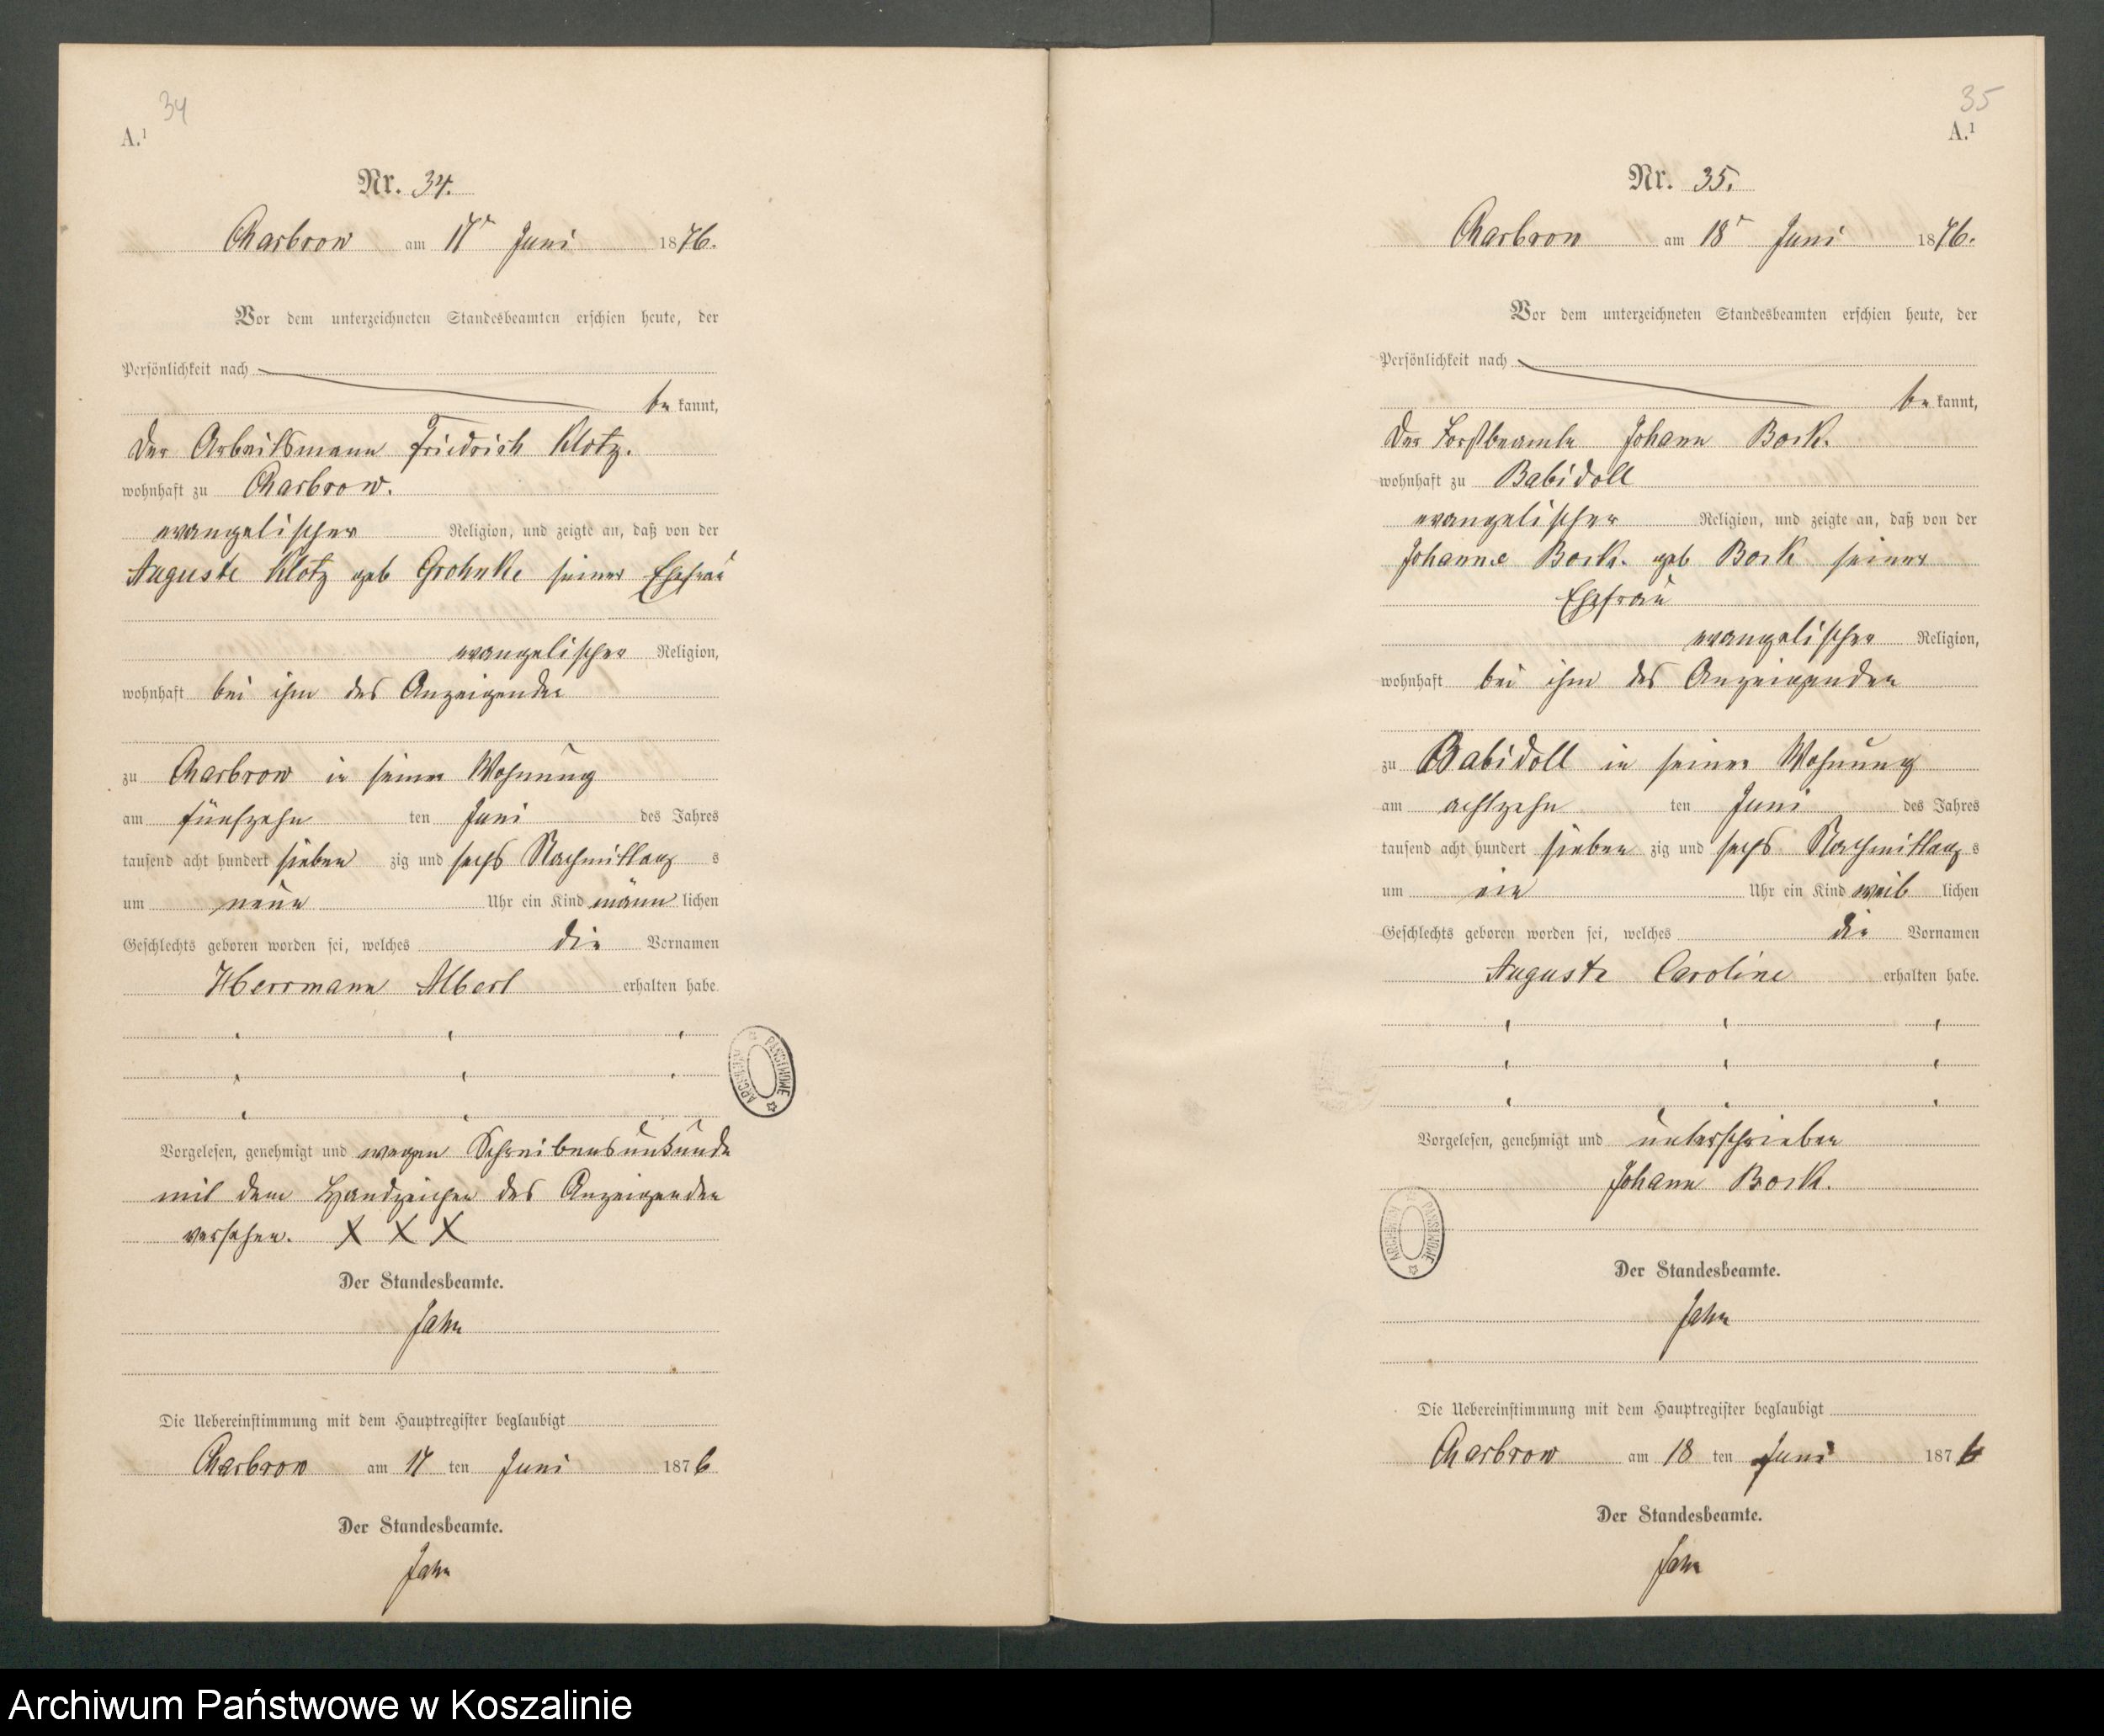 34
A.¹
Nr. 34.
Charbrow am 17ᵗ Juni 1876.
Vor dem unterzeichneten Standesbeamten erschien heute, der
Persönlichkeit nach
be kannt,
der Arbeitsmann Friedrich Klotz.
wohnhaft zu Charbrow.
evangelischer Religion, und zeigte an, daß von der
Auguste Klotz geb Grohnke seiner Ehefrau
evangelischer Religion,
wohnhaft bei ihm des Anzeigenden
zu Charbrow in seiner Wohnung
am fünfzehn ten Juni des Jahres
tausend acht hundert sieben zig und sechs Nachmittag s
um neun Uhr ein Kind männ lichen
Geschlechts geboren worden sei, welches die Vornamen
Herrmann Albert erhalten habe.
ARCHIWUM PAŃSTWOWE
Vorgelesen, genehmigt und wegen Schreibensunkunde
mit dem Handzeichen des Anzeigenden
versehen. X X X
Der Standesbeamte.
Jahn
Die Uebereinstimmung mit dem Hauptregister beglaubigt
Charbrow am 17 ten Juni 1876
Der Standesbeamte.
Jahn
35
A.¹
Nr. 35.
Charbrow am 18ᵗ Juni 1876.
Vor dem unterzeichneten Standesbeamten erschien heute, der
Persönlichkeit nach
be kannt,
der Forstbeamte Johann Bock.
wohnhaft zu Babidoll
evangelischer Religion, und zeigte an, daß von der
Johanne Bock. geb Bock seiner
Ehefrau
evangelischer Religion,
wohnhaft bei ihm des Anzeigenden
zu Babidoll in seiner Wohnung
am achtzehn ten Juni des Jahres
tausend acht hundert sieben zig und sechs Nachmittag s
um ein Uhr ein Kind weib lichen
Geschlechts geboren worden sei, welches die Vornamen
Auguste Caroline erhalten habe.
Vorgelesen, genehmigt und unterschrieben
Johann Bock.
ARCHIWUM PAŃSTWOWE
Der Standesbeamte.
Jahn
Die Uebereinstimmung mit dem Hauptregister beglaubigt
Charbrow am 18 ten Juni 1876
Der Standesbeamte.
Jahn
Archiwum Państwowe w Koszalinie